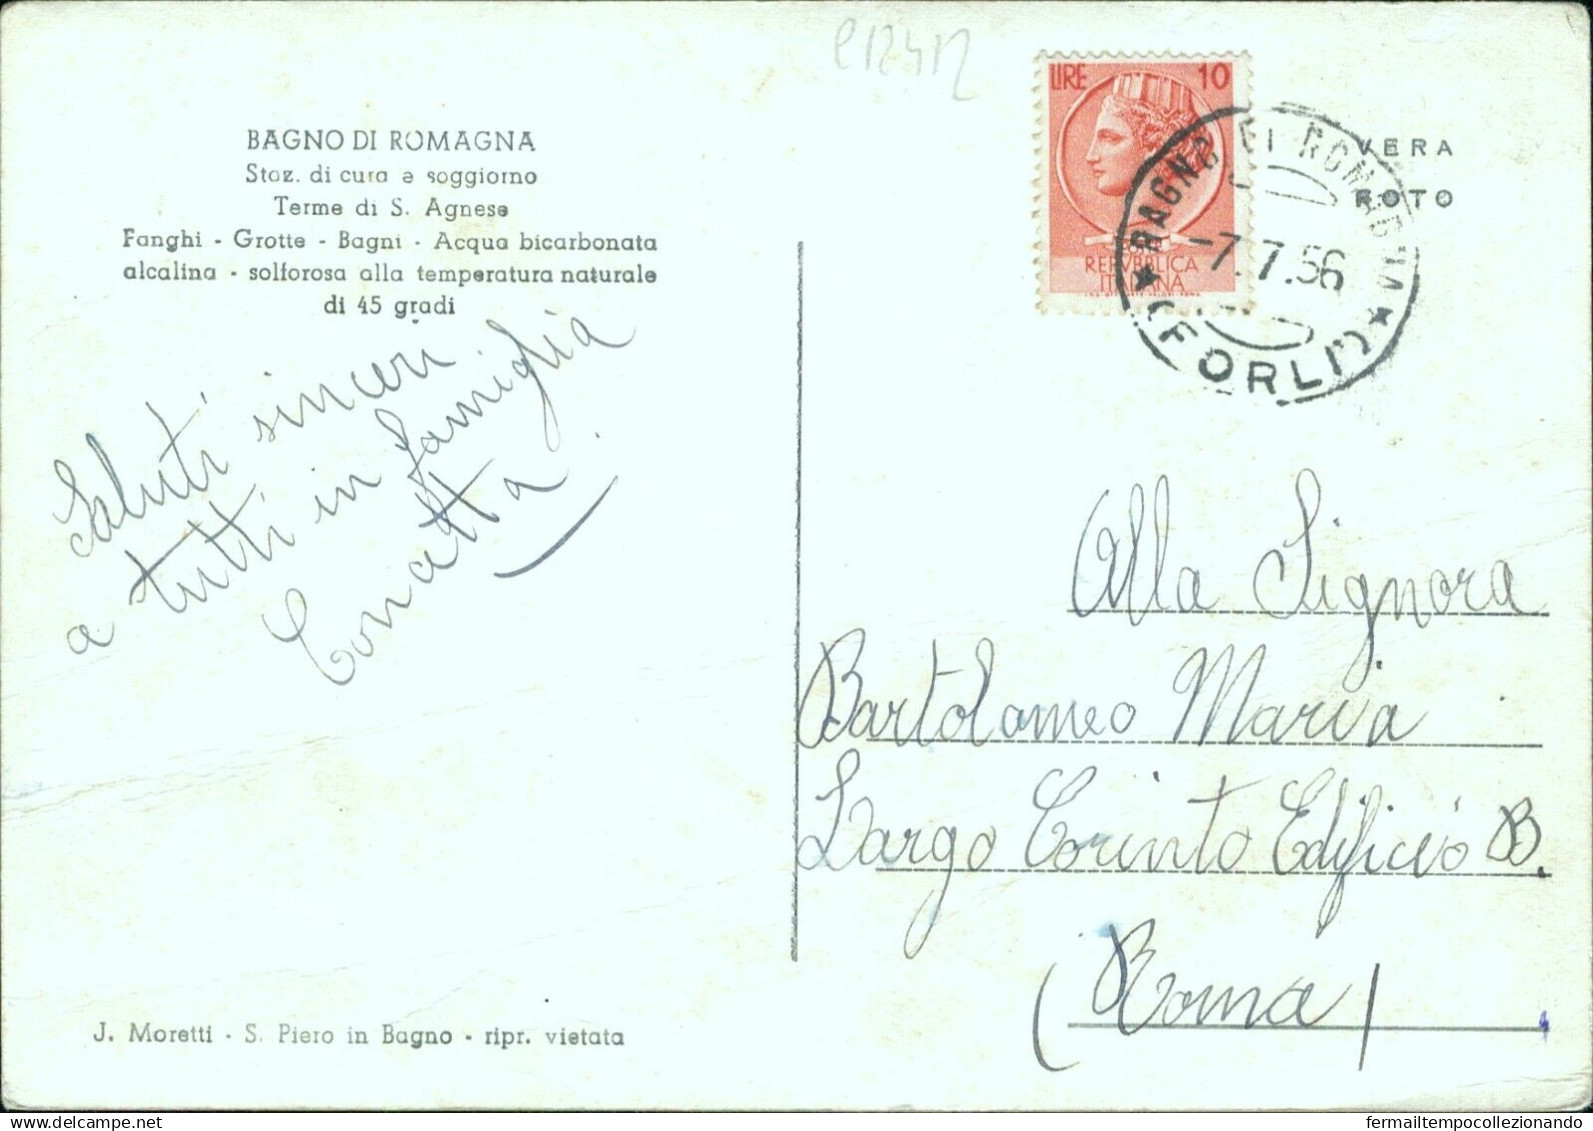 e12412
BAGNO DI ROMAGNA
Staz. di cura e soggiorno
Terme di S. Agnese
Fanghi - Grotte - Bagni - Acqua bicarbonata
alcalina - solforosa alla temperatura naturale
di 45 gradi
Saluti sinceri
a tutti in famiglia
J. Moretti - S. Piero in Bagno - ripr. vietata
LIRE 10
REPVBBLICA
ITALIANA
BAGNO DI ROMAGNA
-7.7.56
(FORLI')
VERA
FOTO
Alla Signora
Bartolomeo Maria
Largo Corinto Edificio B.
(Roma)
fermailtempocollezionando